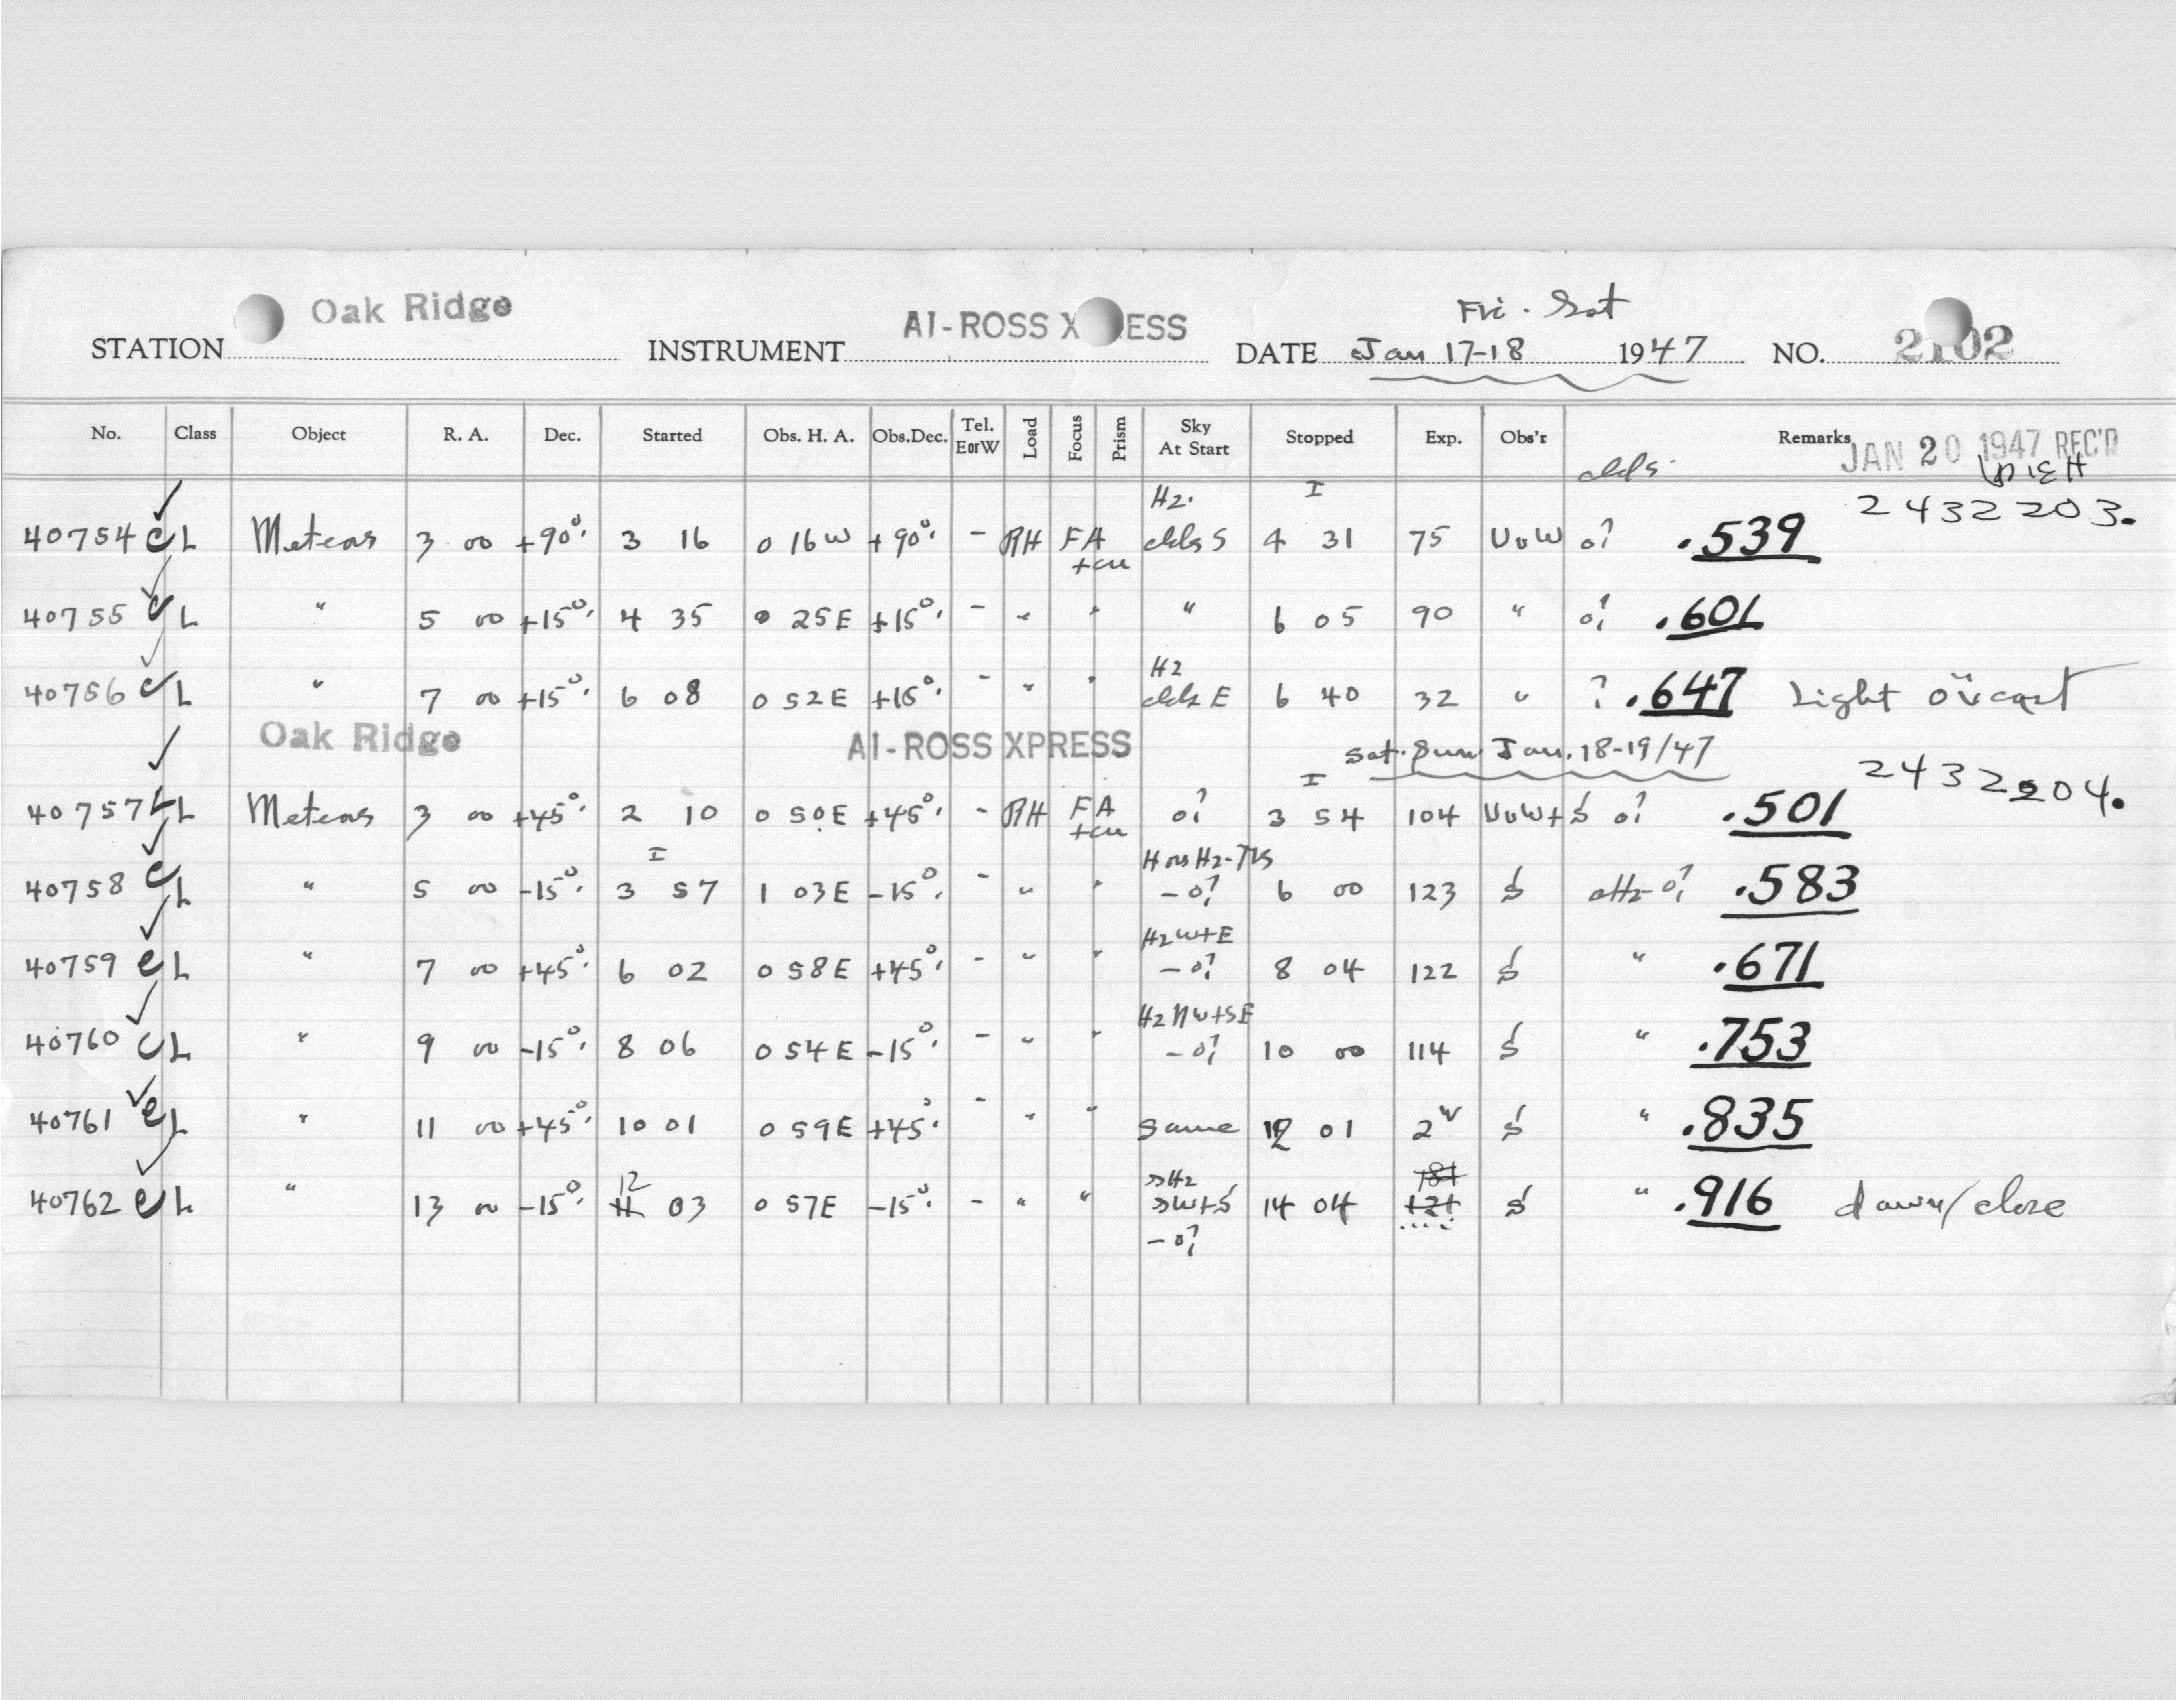 Fri. Sat
STATION Oak Ridge INSTRUMENT AI-ROSS X ESS DATE Jan 17-18 1947 NO. 2102
No. Class Object R. A. Dec. Started Obs. H. A. Obs.Dec. Tel. EorW Load Focus Prism Sky At Start Stopped Exp. Obs'r Remarks JAN 20 1947 REC'D
2432203.
40754 C L Meteors 3 00 +90° 3 16 0 16W +90° - RH FA +cu Hz. clds S I 4 31 75 VvW o? .539
40755 C L " 5 00 +15° 4 35 0 25E +15° - " " " 6 05 90 " o? .601
40756 C L " 7 00 +15° 6 08 0 52E +15° - " " Hz clds E 6 40 32 " ? .647 Light overcast
Oak Ridge AI-ROSS XPRESS Sat. Sun Jan. 18-19/47
2432204.
40757 L Meteors 3 00 +45° 2 10 0 50E +45° - RH FA +cu o? I 3 54 104 VvW+S o? .501
40758 C L " 5 00 -15° I 3 57 1 03E -15° - " " -o? 6 00 123 S -o? .583
40759 C L " 7 00 +45° 6 02 0 58E +45° - " " Hz W+E -o? 8 04 122 S " .671
40760 C L " 9 00 -15° 8 06 0 54E -15° - " " Hz NW+SE -o? 10 00 114 S " .753
40761 C L " 11 00 +45° 10 01 0 59E +45° - " " Same 12 01 2 S " .835
40762 C L " 13 00 -15° 12 03 0 57E -15° - " " -o? 14 04 121 S " .916 dawn/close